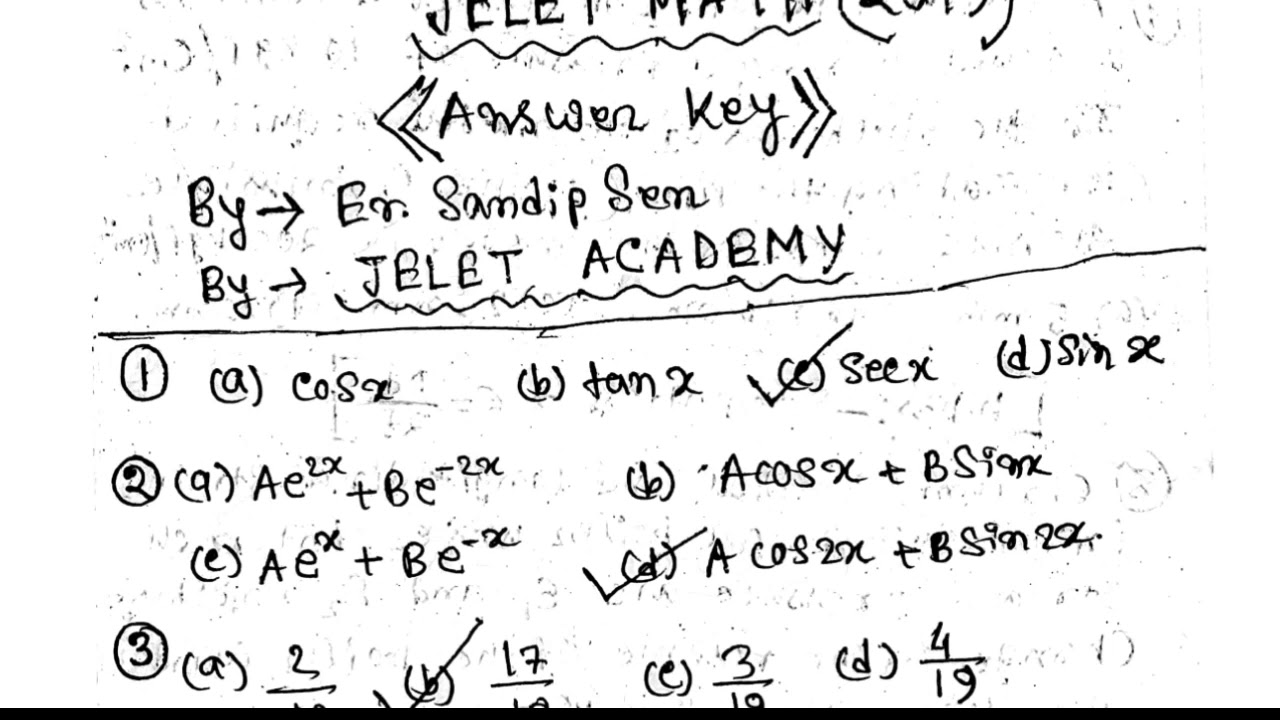 JELET MATH (2019)
《Answer Key》
By → Er. Sandip Sen
By → JELET ACADEMY
① (a) cosx (b) tan x (c) Secx (d) Sin x
② (a) Ae²ˣ + Be⁻²ˣ (b) Acosx + BSinx
(c) Aeˣ + Be⁻ˣ (d) A cos2x + B Sin 2x.
③ (a) 2/19 (b) 17/19 (c) 3/19 (d) 4/19